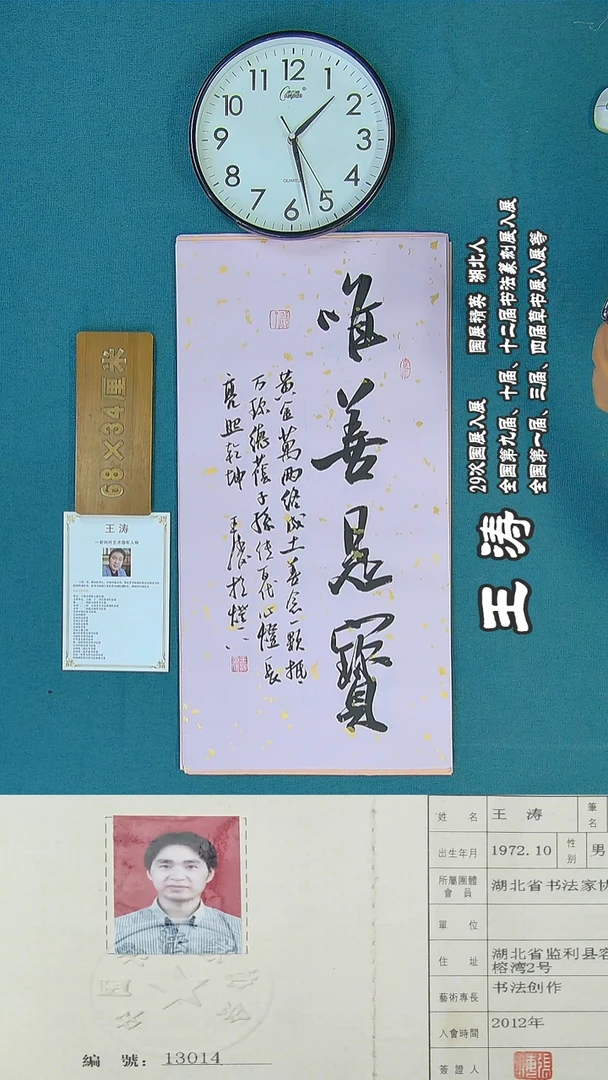 12
1
2
3
4
5
6
7
8
9
10
11
Compas
QUARTZ
唯善是寶
黃金萬兩終成土善念一顆抵
万珍德蔭子孫傳百代心燈長
亮照乾坤 王濤於燈下
68×34厘米
王涛
王涛
29次国展入展 国展精英 湖北人
全国第九届、十届、十二届书法篆刻展入展
全国第一届、三届、四届草书展入展等
姓 名 王 涛 筆名
出生年月 1972.10 性別 男
所屬團體會員 湖北省书法家协
單 位
住 址 湖北省监利县容
榕湾2号
藝術專長 书法创作
入會時間 2012年
簽證人
編 號: 13014